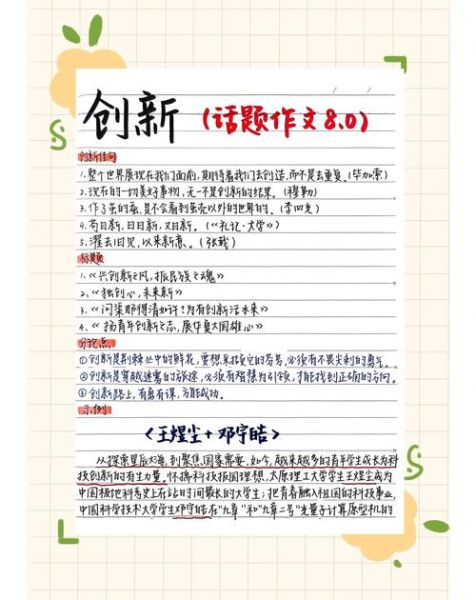 创新 (话题作文8.0)
创新佳句
1.整个世界展现在我们面前,期待着我们去创造,而不是去重复。(毕加索)
2.现在的一切美好事物,无一不是创新的结果。(穆勒)
3.作了茧的蚕,是不会看到茧壳以外的世界的。(李四光)
4.苟日新,日日新,又日新。(《礼记·大学》)
5.濯去旧见,以来新意。(张载)
标题
1.《兴创新之风,振民族之魂》
2.《独创心,未来新》
3.《问渠那得清如许?为有创新活未来》
4.《扬青年创新之志,展华夏大国雄心》
分论点
①创新是荆棘丛中的鲜花,要想采撷它的芬芳,必须有不畏尖刺的勇气。
②创新是穿越迷雾的旅途,必须有智慧为引领,才能找到正确的方向。
③创新路上,有勇有谋,方能成功。
示例
<王煜尘+邓宇皓>
从探索星辰大海,到聚焦国家需要,如今,越来越多的青年学生成长为科
技创新的有生力量。怀揣科技报国理想,太原理工大学学生王煜尘成为
中国极地科考史上在站时间最长的大学生;把青春融入祖国的科技事业,
中国科学技术大学学生邓宇皓在"九章"和"九章二号"光量子计算原型机的